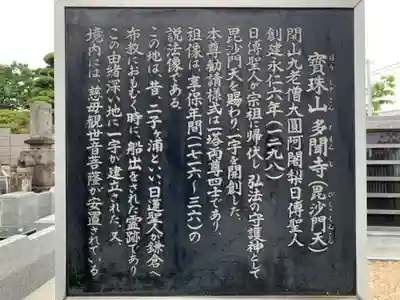 寳珠山 多聞寺(毘沙門天)
ほうしゅざん たもんじ びしゃもんてん
開山九老僧大圓阿闍梨日傳聖人
創建・永仁六年(一二九八)
日傳聖人が宗祖に帰伏し、弘法の守護神として
毘沙門天を賜わり、一宇を開創した。
本尊勧請様式は一塔両尊四士であり、
祖像は、享保年間(一七一六〜三六)の
説法像である。
この地は、昔、二子ヶ浦といい、日蓮聖人が鎌倉へ
布教におもむく時に、船出をされた霊跡であり
この由緒深い地に一宇が建立された。又、
境内には、慈母観世音菩薩が安置されている